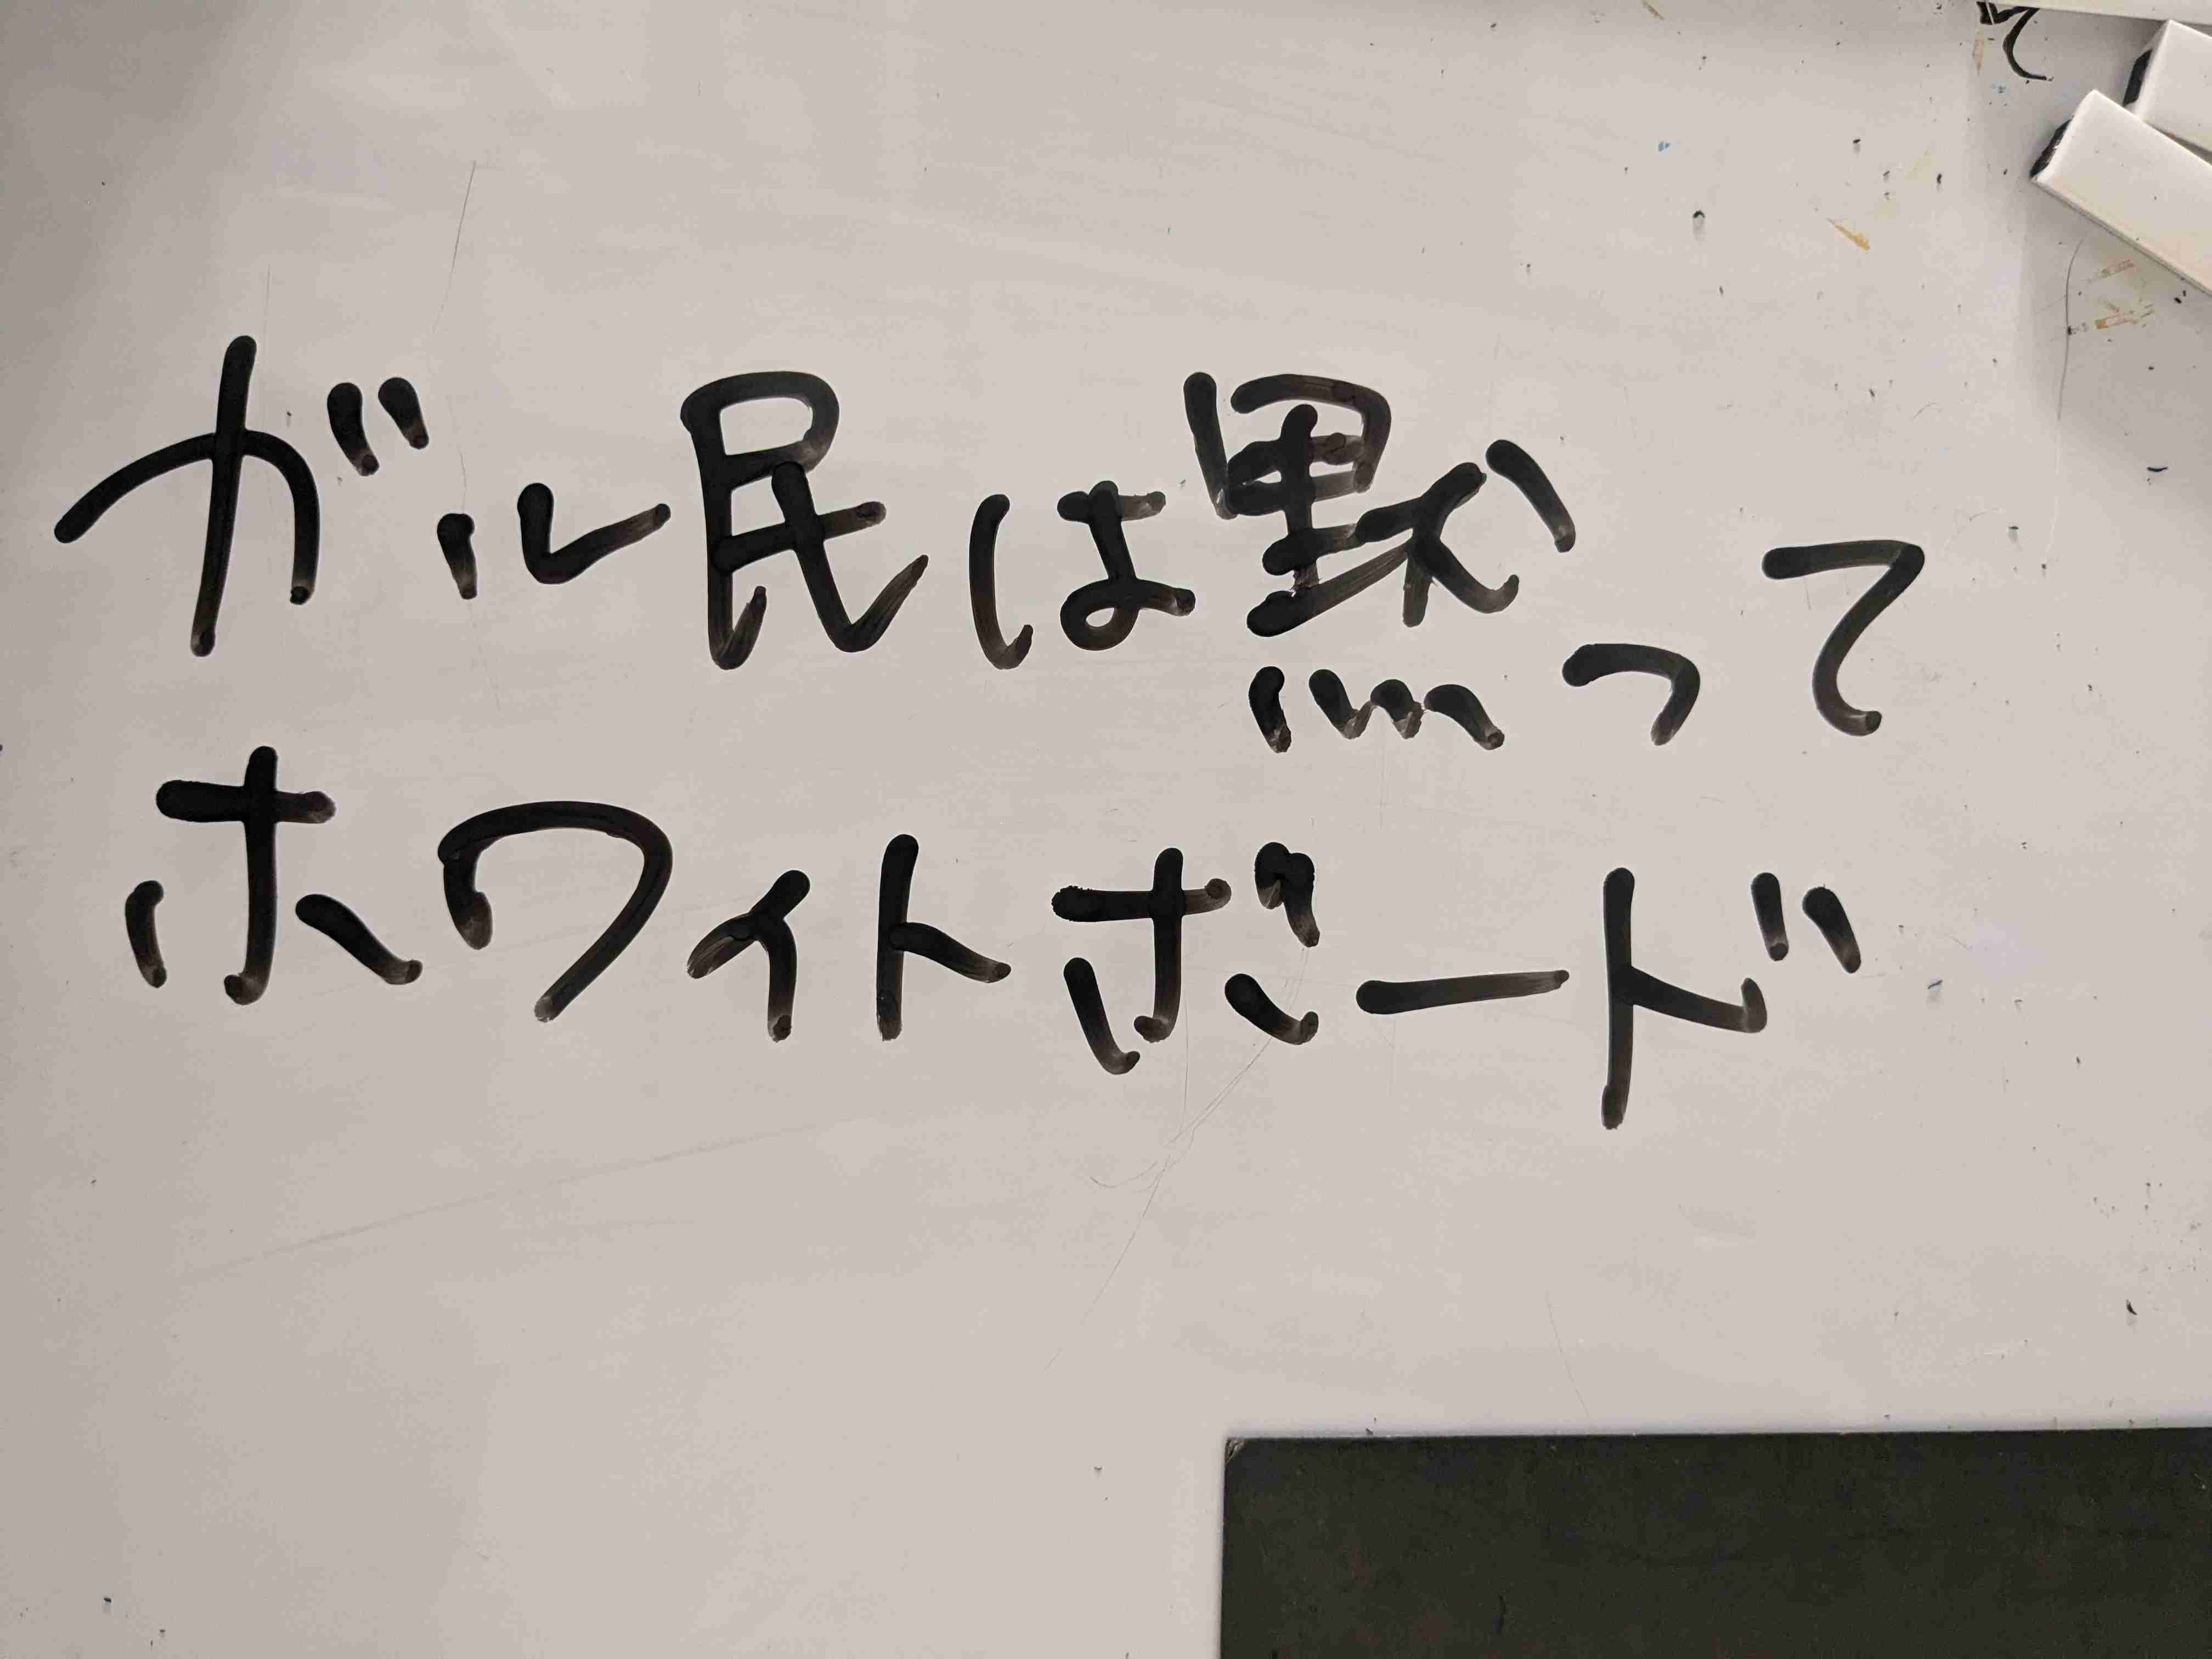 ガル民は黙って
ホワイトボード